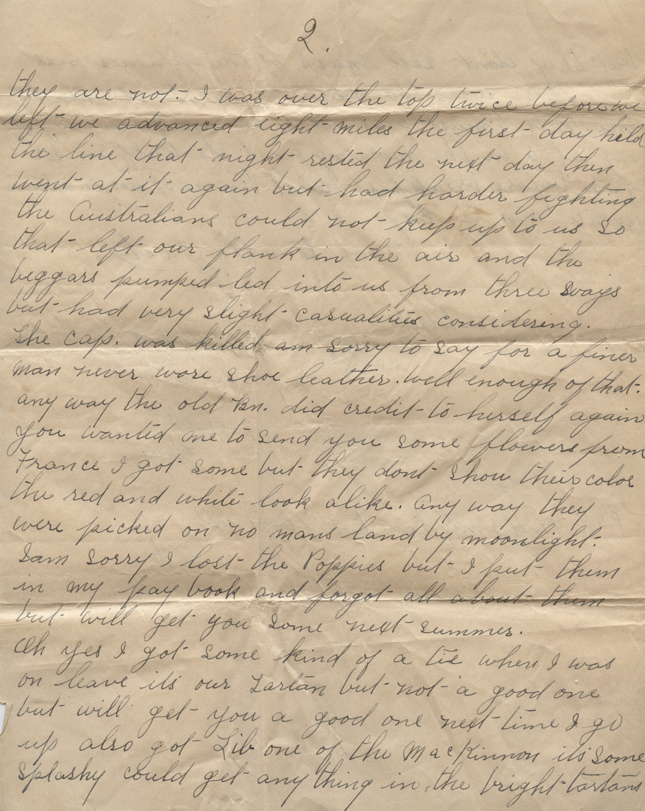 2.
they are not. I was over the top twice before we
left we advanced eight miles the first day held
the line that night rested the next day then
went at it again but had harder fighting
the Australians could not keep up to us so
that left our flank in the air and the
beggars pumped led into us from three ways
but had very slight casualities considering.
The cap. was killed am sorry to say for a finer
man never wore shoe leather. Well enough of that.
any way the old Bn. did credit to herself again
You wanted me to send you some flowers from
France I got some but they dont show their color
the red and white look alike. Any way they
were picked on no mans land by moonlight.
I am sorry I lost the Poppies but I put them
in my pay book and forgot all about them
but will get you some next summer.
Oh yes I got some kind of a tie when I was
on leave its our Tartan but not a good one
but will get you a good one next time I go
up also got Lib one of the MacKinnon its some
splashy could get any thing in the bright tartans